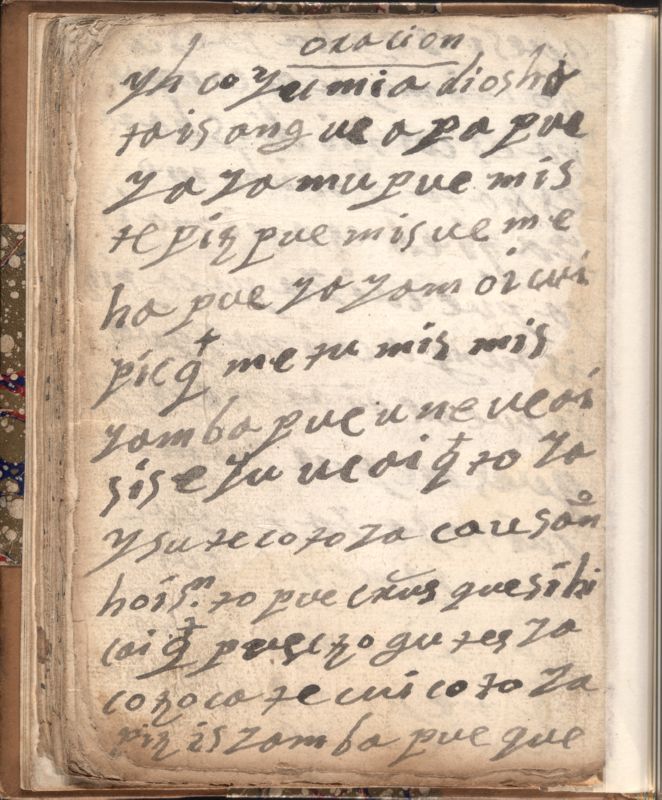 oracion
yh co yu mia dios hi
ta is ang ue a pa pue
za za mu pue mis
te piz pue mis ue me
ha pue za zam oi cui
picq me tu mis mis
zamba pue une ue ai
sis e zu ue ai q to za
y su te co to za cauesaōn
hoisn. to pue crus que si hi
cai q pues czo gu tez za
co zo ca te cui co to za
piz is zamba pue que